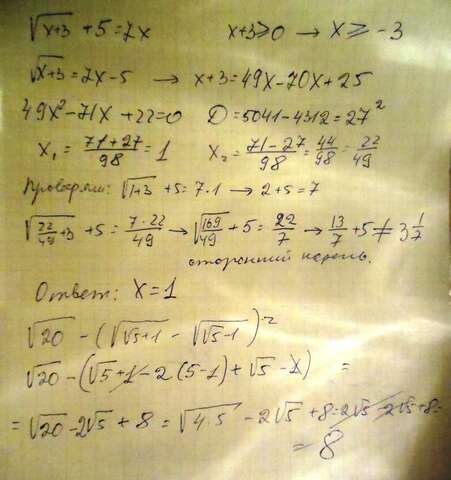 √x+3 + 5 = 7x x+3≥0 → x ≥ -3
√x+3 = 7x-5 → x+3 = 49x-70x+25
49x²-71x+22=0 D=5041-4312=27²
x₁ = 71+27/98 = 1 x₂ = 71-27/98 = 44/98 = 22/49
Проверяем: √1+3 +5 = 7·1 → 2+5=7
√22/49+3 + 5 = 7·22/49 → √169/49 + 5 = 22/7 → 13/7 + 5 ≠ 3 1/7
сторонний корень.
Ответ: x=1
√20 - (√√5+1 - √√5-1)²
√20 - (√5+1-2(5-1)+√5-1) =
= √20 - 2√5 + 8 = √4·5 - 2√5 + 8 = 2√5 - 2√5 + 8 =
= 8